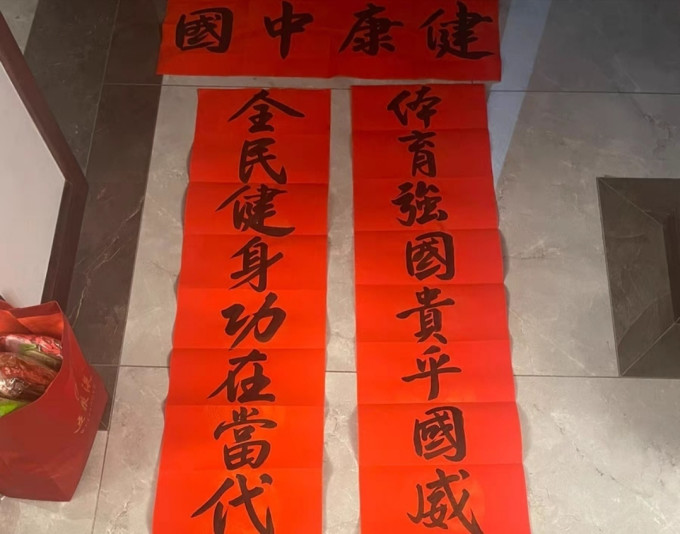 健康中國
体育強國貴乎國威
全民健身功在當代